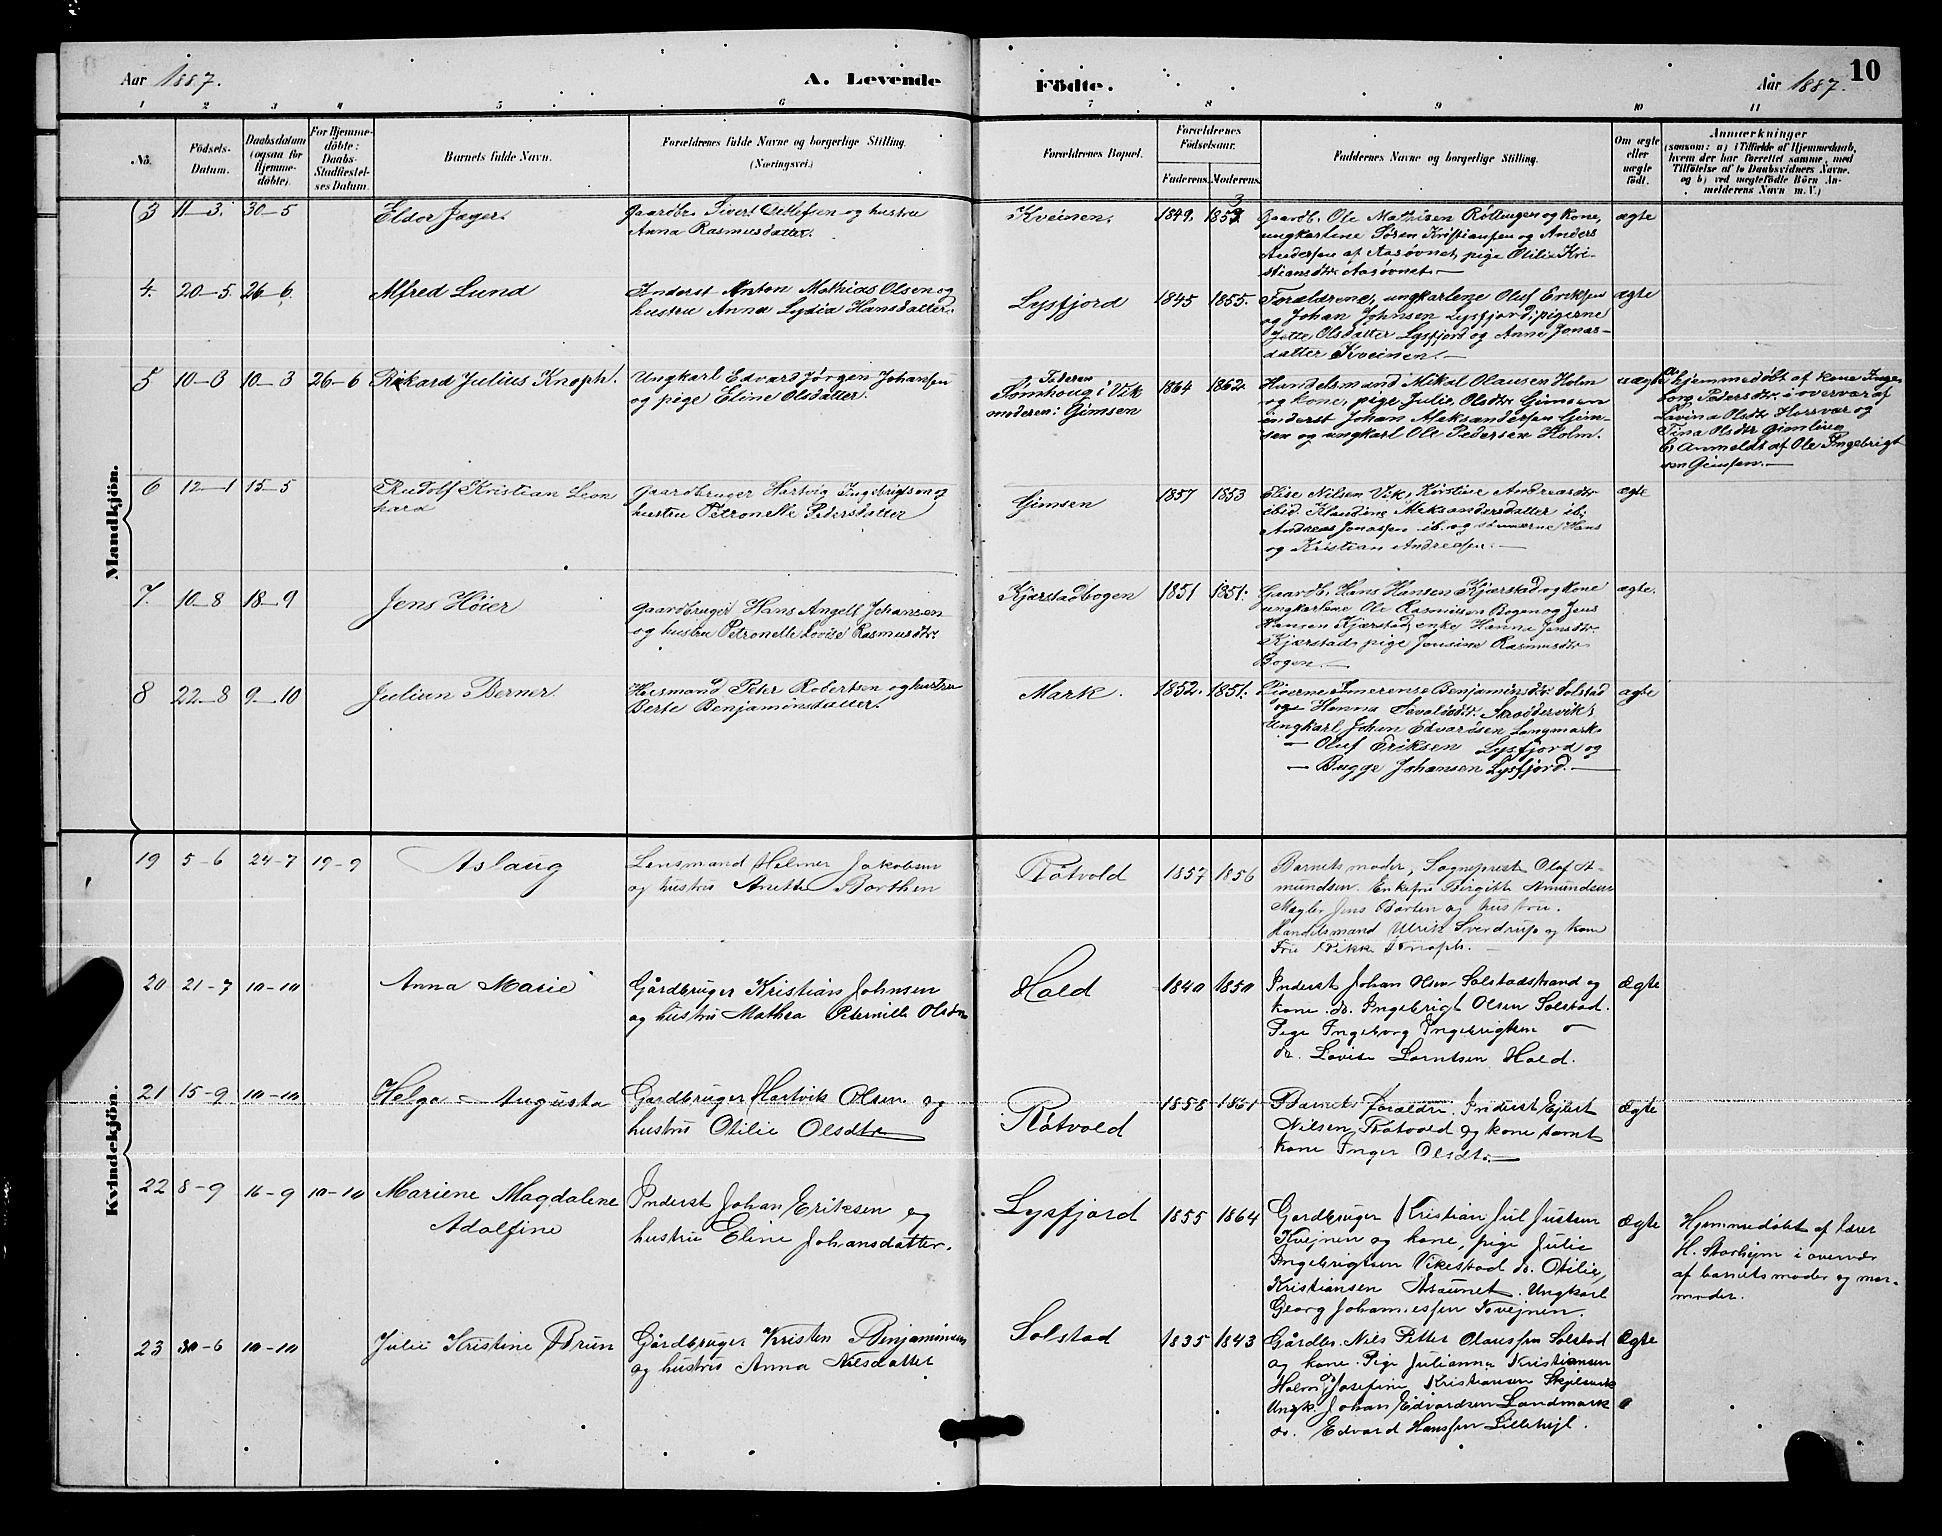 Aar 1887.
A. Levende
Födte.
Aar 1887.
10
1 2 3 4 5 6 7 8 9 10 11
No.
Födsels-
Datum.
Daabsdatum
(ogsaa for
Hjemme-
döbte).
For Hjemme-
döbte:
Daabs-
Stadfæstel-
ses Datum.
Barnets fulde Navn.
Forældrenes fulde Navne og borgerlige Stilling.
(Næringsvei.)
Forældrenes Bopæl.
Forældrenes
Födselsaar.
Faderens. Moderens.
Faddernes Navne og borgerlige Stilling.
Om ægte
eller
uægte
födt.
Anmærkninger
(saasom: a) i Tilfælde af Hjemmedaab,
hvem der har forrettet samme, med
Tilföielse af to Daabsvidners Navne,
og b) ved uægtefödte Börn An-
melderens Navn m. V.)
Mandkjön.
3 11-3. 30-5
Eldor Jæger.
Gaardbr. Sivert Detlefsen og hustru
Anna Rasmusdatter.
Kveinen.
1849. 1853
Gaardb. Ole Mathisen Röttingen og kone,
ungkarlene Sören Kristiansen og Anders
Andersen af Aasövnet, pige Otilie Kri-
stiansdtr Aasövnet.
ægte
4. 20-5. 26-6.
Alfred Lund
Inderst Anton Mathias Olsen og
hustru Anna Lydia Hansdatter.
Lysfjord
1845 1855.
Forældrene, ungkarlene Oluf Eriksen
og Johan Johnsen Lysfjord, pigerne
Jette Olsdatter Lysfjord og Anne Jonas-
datter Kveinen.
ægte
5 10-3 10-3 26-6
Rikard Julius Knoph.
Ungkarl Edvard Jörgen Johansen
og pige Eline Olsdatter.
Faderen
Tömhoug i Vik
moderen: Gimsen
1864 1862.
Handelsmand Mikal Olausen Holm
og kone, pige Julie Olsdtr Gimsen
inderst Johan Aleksandersen Gim-
sen og ungkarl Ole Pedersen Holm.
uægte
hjemmedöbt af kone Inge-
borg Pedersdtr. i overvær af
Lovina Olsdtr Horsvær og
Tina Olsdtr Gimling
Er Anmeldt af Ole Ingebrigt
sen Gimsen.
6 12-1 15-5
Rudolf Kristian Leon
hard
Gaardbruger Hartvig Ingebrigtsen og
hustru Petronelle Pedersdatter
Gimsen
1857 1853
Elise Nilsen Vik, Kirstine Andreasdtr
ibid. Klaudine Aleksandersdatter ib,
Andreas Jonassen ib. og sönnerne Hans
og Kristian Andreasen.
ægte
7. 10-8 18-9
Jens Höier
Gaardbruger Hans Angell Johansen
og hustru Petronelle Lovise Rasmusdtr.
Kjærstadbogen
1851 1851.
Gaardb. Hans Hansen Kjærstad og kone
ungkarlene Ole Rasmusen Bogen og Jens
Hansen Kjærstad, enke Hanna Jensdtr.
Kjærstad, pige Jensine Rasmusdtr
Bogen.
ægte.
8 22-8 9-10
Julian Berner.
Husmand Peter Robertsen og hustru
Berte Benjaminsdatter.
Mark.
1852. 1851.
Pigerne Emerense Benjaminsdtr. Solstad
og Hanna Sivaldsdtr. Skroddervik,
Ungkarl Johan Edvardsen Langmark.
— Oluf Eriksen Lysfjord og
— Bugge Johansen Lysfjord.
ægte
Kvindekjön.
19 5-6 24-7 19-9
Aslaug
Lensmand Helmer Jakobsen
og hustru Anette Borthen
Råtvold
1857 1856
Barnets moder, Sogneprest Olof A-
mundsen. Enkefru Birgitte Amundsen
Mægler Jens Borten og hustru.
Handelsmand Ulrik Sverdrup og kone
Fru Rikke Knoph.
20 21-7 10-10
Anna Marie
Gårdbruger Kristian Johnsen
og hustru Mathea Peternille Olsdtr
Hald
1840 1850
Inderst Johan Olsen Solstadstrand og
kone. do. Ingebrigt Olsen Solstad.
Pige Ingeborg Ingebrigtsen
do. Lovise Larntsen Hald.
Ægte
21 15-9 10-10
Helga Augusta
Gardbruger Hartvik Olsen og
hustru Otilie Olsdtr
Råtvold
1858 1861
Barnets Forældre. Inderst Ejlert
Nilsen Råtvold og kone samt
kone Inger Olsdtr.
Ægte
22 8-9 16-9 10-10
Mariene Magdalene
Adolfine
Inderst Johan Eriksen og
hustru Eline Johansdatter.
Lysfjord
1855 1864
Gardbruger Kristian Jul Justsen
Kvejnen og kone, pige Julie
Ingebrigtsen Vikestad do. Otilie
Kristiansen Åsaunet. Ungkarl
Georg Johannessen Kvejnen.
Ægte
Hjemmedöbt af lærer
H. Storhejm i overvær
af barnets moder og mor-
moder.
23 30-6 10-10
Julie Kristine Brun
Gårdbruger Kristen Benjaminsen
og hustru Anna Nilsdatter
Solstad
1835 1843
Gårdbr. Nils Petter Olaussen Solstad
og kone. Pige Julianna Kristiansen
Holm, Josefine Kristiansen Skjelsvik
Ungk. Johan Edvardsen Landmark
do. Edvard Hanssen Lillehejl.
Ægte